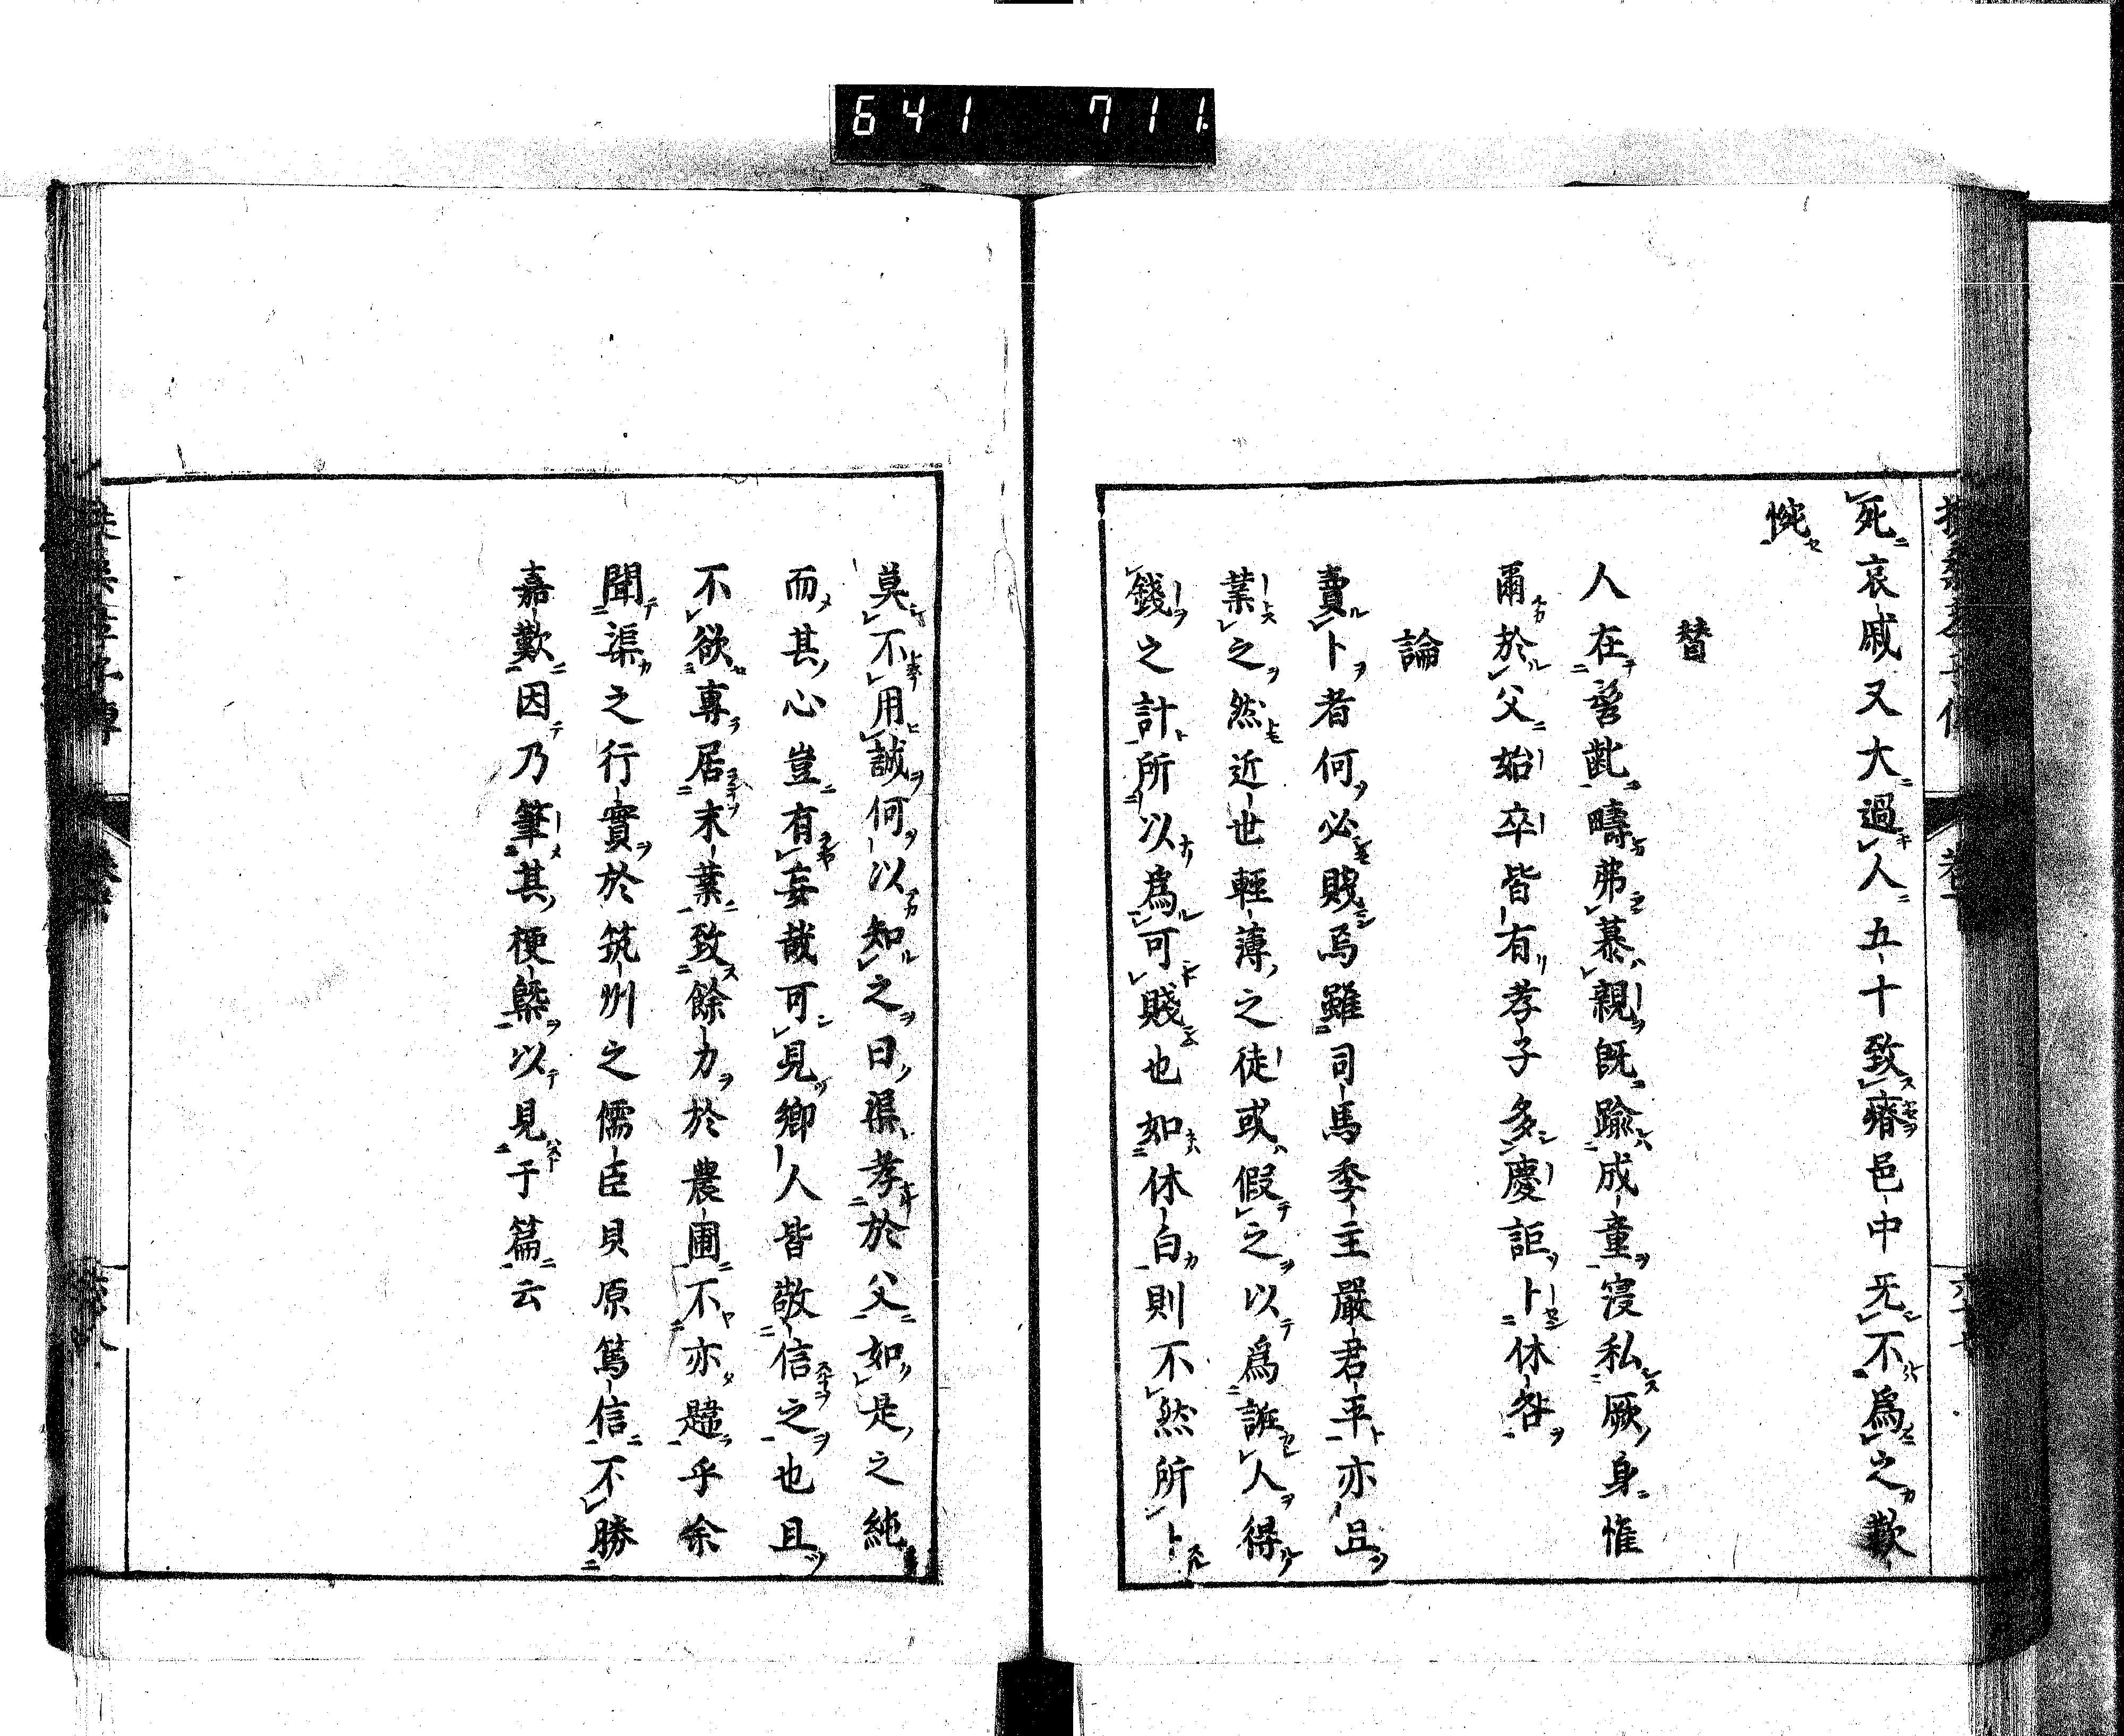 641 711.
死哀戚又大過人五十致瘠邑中无不爲之歎
惋
替
人在㝈茈疇弗慕親既踰成童寖私厥身惟
爾於父始卒皆有孝子多慶詎卜休咎
論
賣卜者何必賤焉雖司馬季主嚴君平亦且
業之然近世輕薄之徒或假之以爲誑人得
錢之計所以爲可賤也如休白則不然所卜
莫不用誠何以知之曰渠孝於父如是之純
而其心豈有妄哉可見鄉人皆敬信之也且
不欲專居末業致餘力於農圃不亦韙乎余
聞渠之行實於筑州之儒臣貝原篤信不勝
嘉歎因乃筆其梗槩以見于篇云